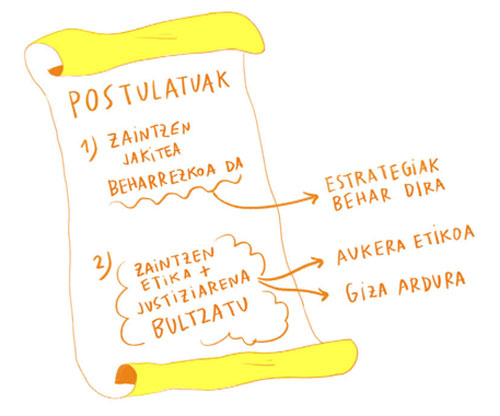 POSTULATUAK
1) ZAINTZEN
JAKITEA
BEHARREZKOA DA
ESTRATEGIAK
BEHAR DIRA
2) ZAINTZEN
ETIKA +
JUSTIZIARENA
BULTZATU
AUKERA ETIKOA
GIZA ARDURA